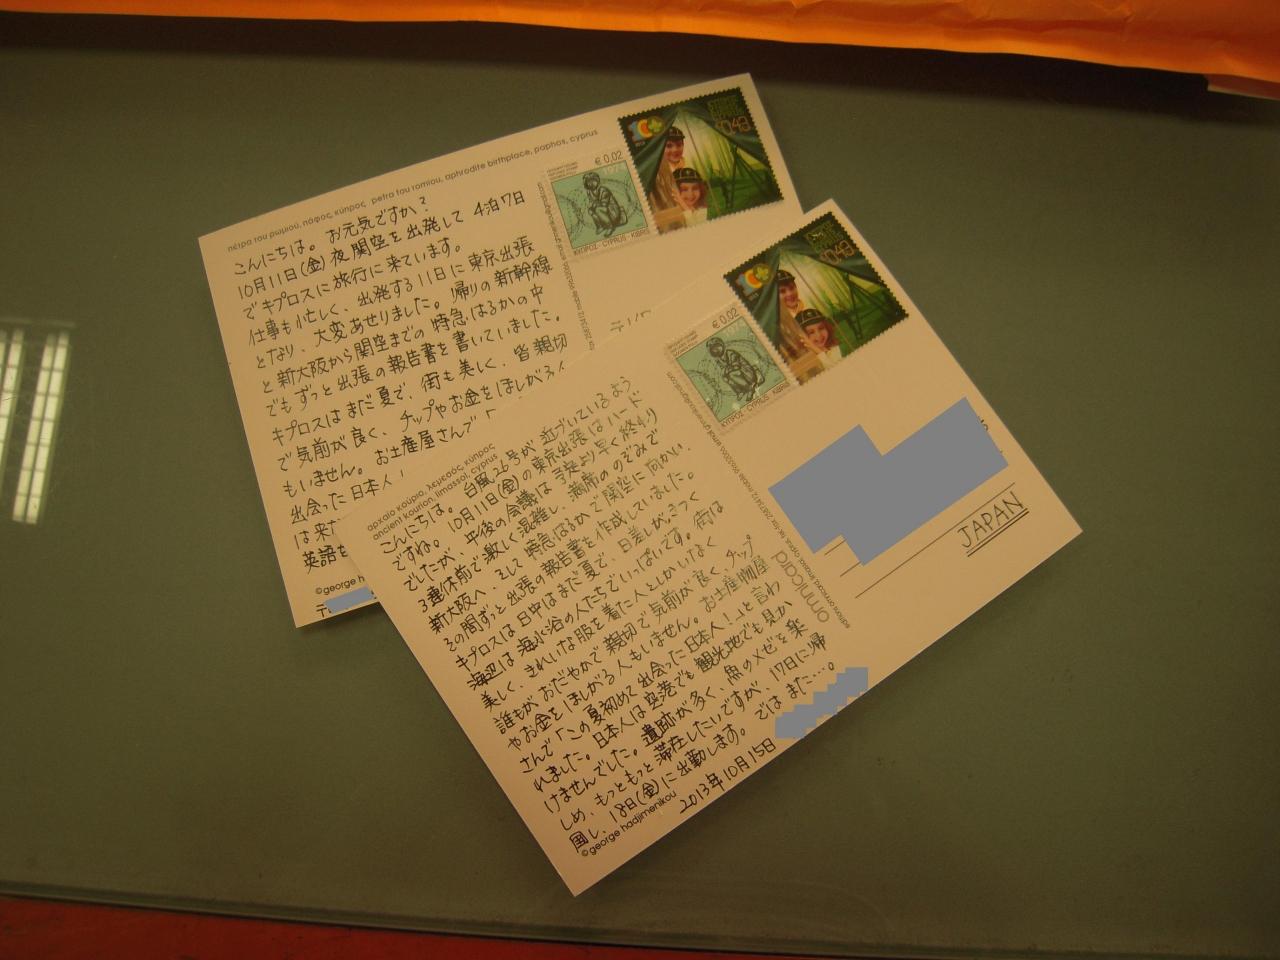 πέτρα του ρωμιού, πάφος, κύπρος petra tou romiou, aphrodite birthplace, paphos, cyprus
こんにちは。お元気ですか?
10月11日(金)夜関空を出発して 4泊7日
でキプロスに旅行に来ています。
仕事も忙しく、出発する11日に東京出張
となり、大変あせりました。帰りの新幹線
と新大阪から関空までの特急はるかの中
でもずっと出張の報告書を書いていました。
キプロスはまだ夏で、街も美しく、皆親切
で気前が良く、チップやお金をほしがる人
もいません。お土産屋さんで「
出会った日本人
は来た
英語を
©george h
€0,02
1974
ΚΥΠΡΟΣ - CYPRUS - KIBRIS
€0,43
αρχαίο κούριο, λεμεσός, κύπρος
ancient kourion, limassol, cyprus
こんにちは。台風26号が近づいているよう
ですね。10月11日(金)の東京出張はハード
でしたが、午後の会議は予定より早く終わり
3連休前で激しく混雑し、満席ののぞみで
新大阪へ、そして特急はるかで関空に向かい、
その間ずっと出張の報告書を作成していました。
キプロスは日中はまだ夏で、日差しがきつく
海辺は海水浴の人たちでいっぱいです。街は
美しく、きれいな服を着た人としかいなく
誰もがおだやかで親切で気前が良く、チップ
やお金をほしがる人もいません。お土産物屋
さんで「この夏初めて出会った日本人!」と言わ
れました。日本人は空港でも観光地でも見か
けませんでした。遺跡が多く、魚のメゼを楽
しめ、もっともっと滞在したいですが、17日に帰
国し、18日(金)に出勤します。ではまた…。
2013年10月15日
©george hadjimenikou
€0,02
ΚΥΠΡΟΣ - CYPRUS - KIBRIS
€0,43
omnicard
JAPAN